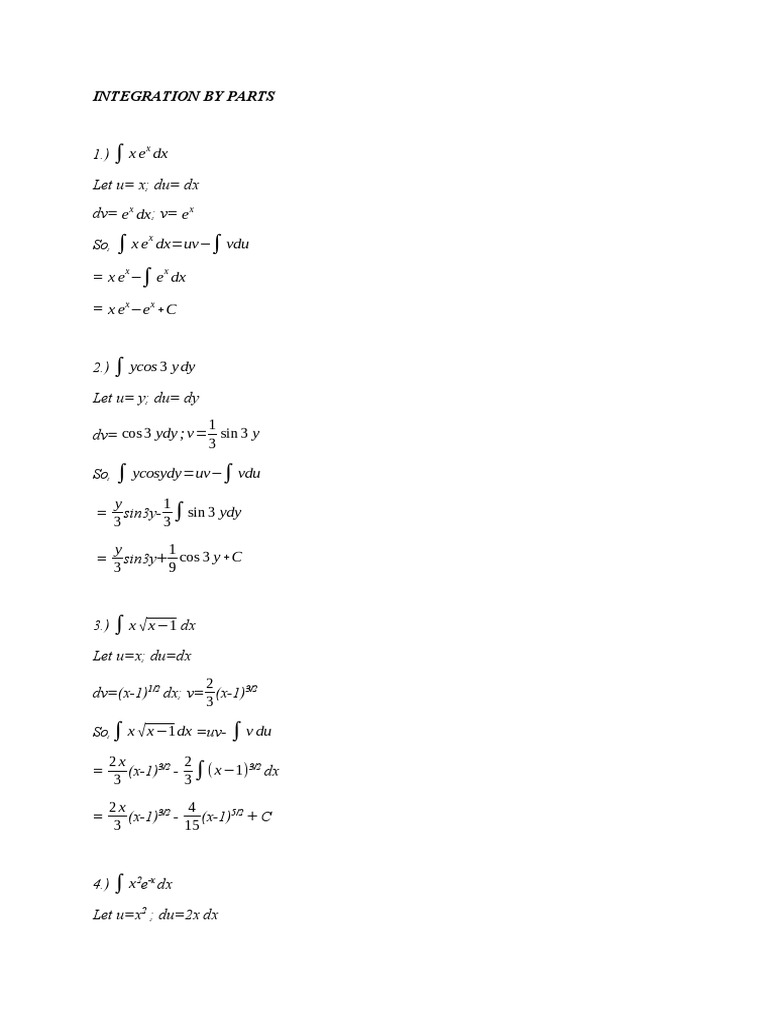 INTEGRATION BY PARTS
1.) ∫ x eˣ dx
Let u= x; du= dx
dv= eˣ dx; v= eˣ
So, ∫ x eˣ dx=uv−∫ vdu
= x eˣ−∫ eˣ dx
= x eˣ−eˣ+C
2.) ∫ ycos 3 y dy
Let u= y; du= dy
dv= cos 3 ydy ; v= 1/3 sin 3 y
So, ∫ ycosydy=uv−∫ vdu
= y/3 sin3y- 1/3 ∫ sin 3 ydy
= y/3 sin3y+ 1/9 cos 3 y+C
3.) ∫ x √(x−1) dx
Let u=x; du=dx
dv=(x-1)^1/2 dx; v= 2/3 (x-1)^3/2
So, ∫ x √(x−1) dx =uv- ∫ v du
= 2x/3 (x-1)^3/2 - 2/3 ∫ (x−1)^3/2 dx
= 2x/3 (x-1)^3/2 - 4/15 (x-1)^5/2 + C
4.) ∫ x²e⁻ˣ dx
Let u=x² ; du=2x dx